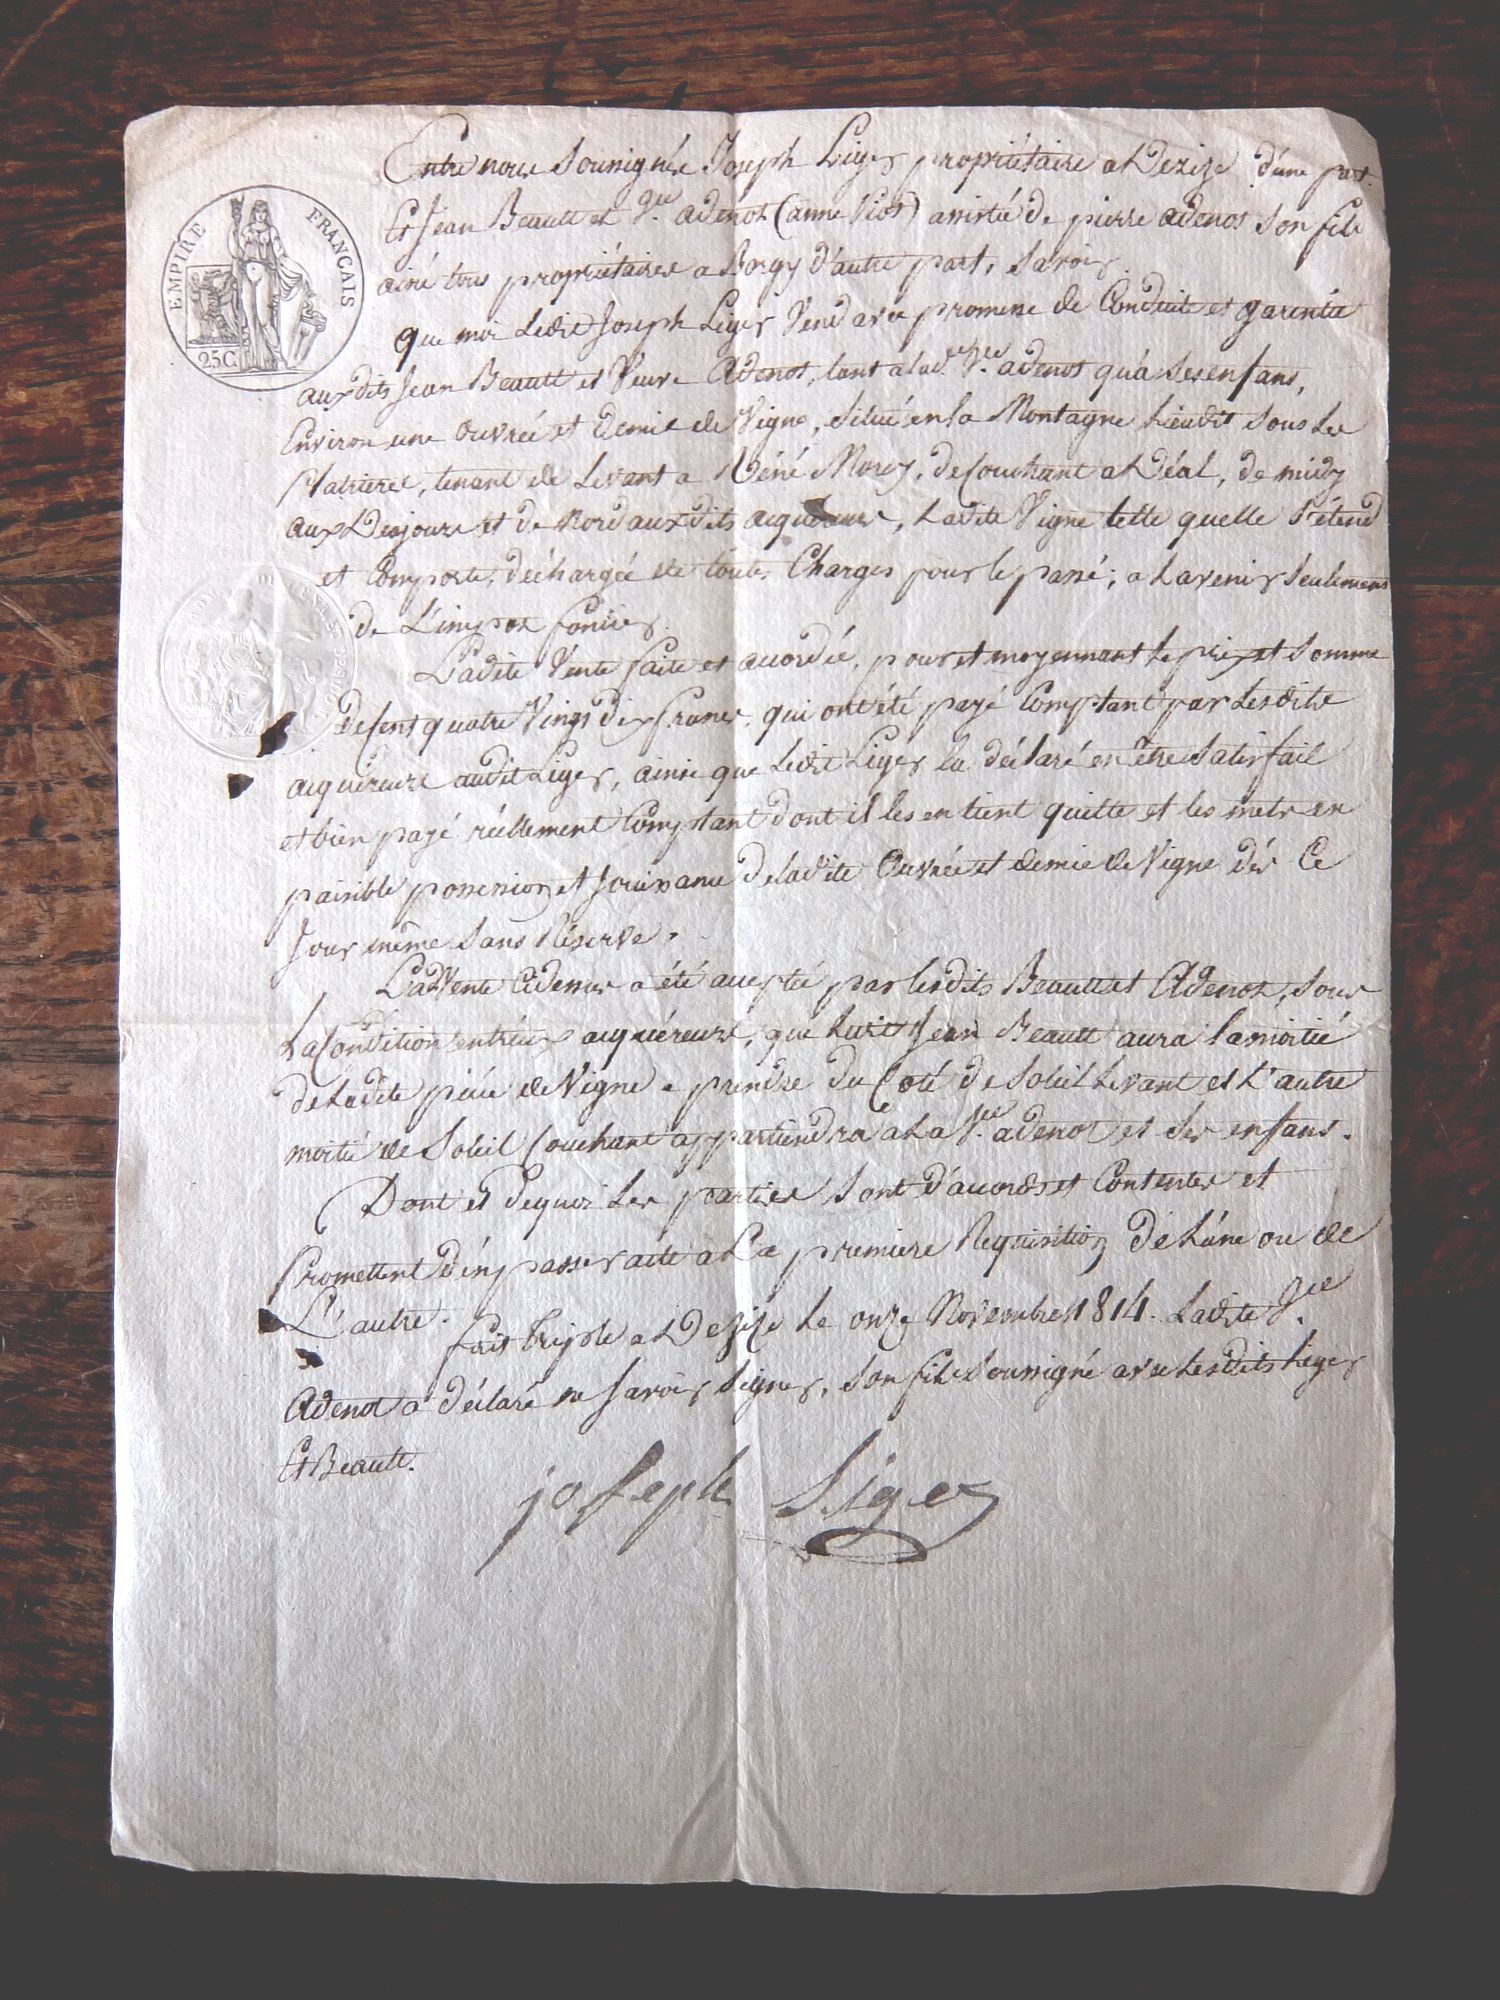 EMPIRE FRANÇAIS
25C.
Entre nous soussignés Joseph Liger propriétaire a Dezize d'une part
Et Jean Beault et Vve adenot (anne Viot) assistée de pierre adenot son fils
ainé tous propriétaires a Borgy d'autre part, savoir
que moi Ledit Joseph Liger Vend avec promesse de Conduite et garentie
auxdits Jean Beault et Veuve Adenot, tant a lad. Vve adenot qu'a ses enfans,
Environ une Ouvrée et demie de Vigne, situé en la Montagne Lieudit sous les
platrieres, tenant de Levant a Réné Morey, de Couchant a Déal, de midy
aux Desjours et de Nord auxdits acquereurs, Ladite Vigne telle quelle s'étend
et Comporte, déchargée de toutes Charges pour le passé, a Lavenir seulement
de L'impot foncier.
Ladite Vente faite et acordée, pour et moyennant le prix et somme
de Cent quatre Vingt dix francs, qui ont été payé Comptant par Lesdits
acquéreurs audit Liger, ainsi que Ledit Liger la déclaré en être satisfait
et bien payé réellement Comptant dont il les en tient quitte et les mets en
paisible possession et Jouissance de ladite Ouvrée et demie de Vigne dés Ce
Jour même sans Réserve.
La Vente Cidessus a été acceptée par lesdits Beault et Adenot, sous
La Condition entreux acquéreurs, que Ledit Jean Beault aura la moitié
de Ladite piéce de Vigne a prendre du Coté de Soleil Levant et L'autre
moitié de Soleil Couchant appartiendra a La Vve adenot et ses enfans.
Dont et dequoi Les parties sont d'accords et Contentes et
Promettent d'en passer acte a La premiere Requisition de L'une ou de
L'autre.
fait triple a Dezize Le onze Novembre 1814. Ladite Vve
Adenot a déclaré ne savoir signer, son fils soussigné avec Lesdits Liger
Et Beault.
joseph Liger